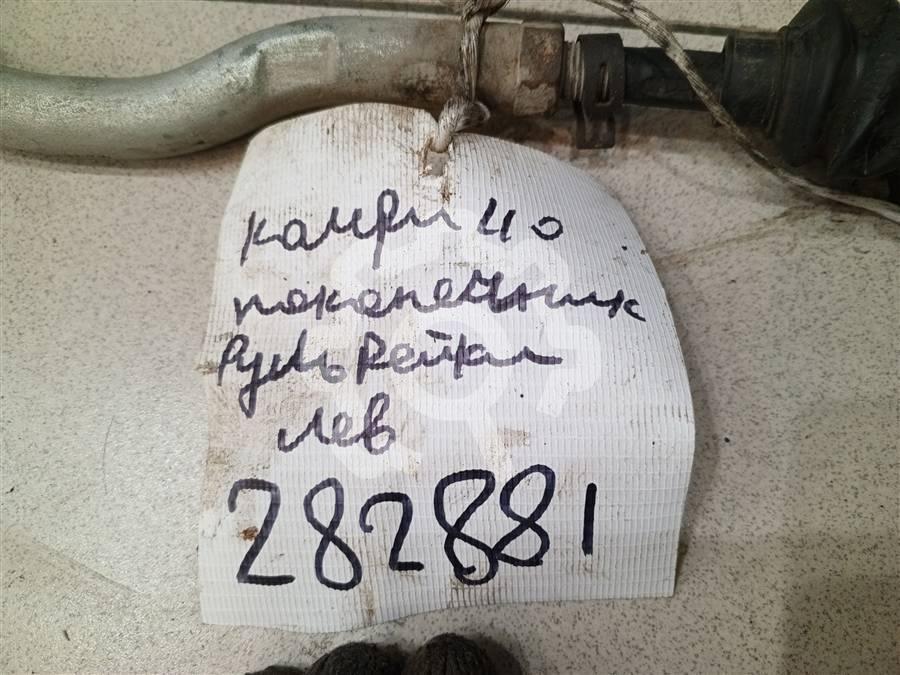 камри 40
наконечник
Руль Рейки
лев
282881